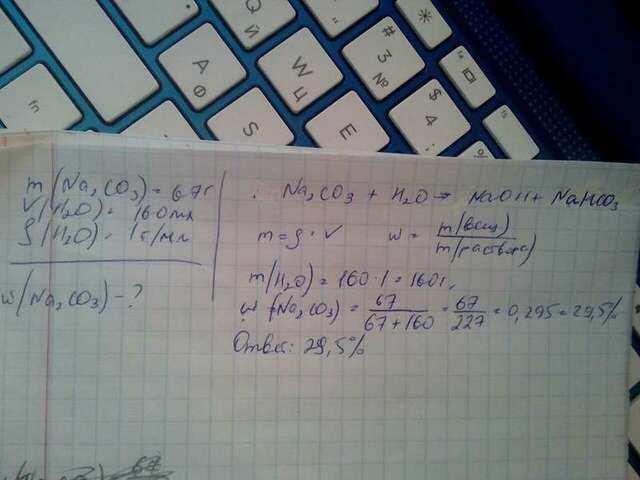 Q Й
*
A Ф
W Ц
# 3 №
S
E
$ 4 ;
m(Na₂CO₃) = 67г
V(H₂O) = 160мл
ρ(H₂O) = 1г/мл
w(Na₂CO₃) - ?
Na₂CO₃ + H₂O → NaOH + NaHCO₃
m = ρ · V w = m(вещ) / m(раствора)
m(H₂O) = 160 · 1 = 160г
w (Na₂CO₃) = 67 / 67 + 160 = 67 / 227 = 0,295 = 29,5%
Ответ: 29,5%
67